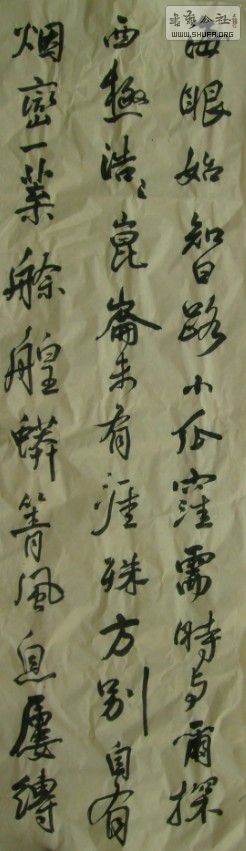 眼始知日路小窪需時与爾探
西極浩々崑崙未有涯殊方別自有
烟巒一葉艅艎蟒箐風息屢縛
公社
WWW.SHUFA.ORG